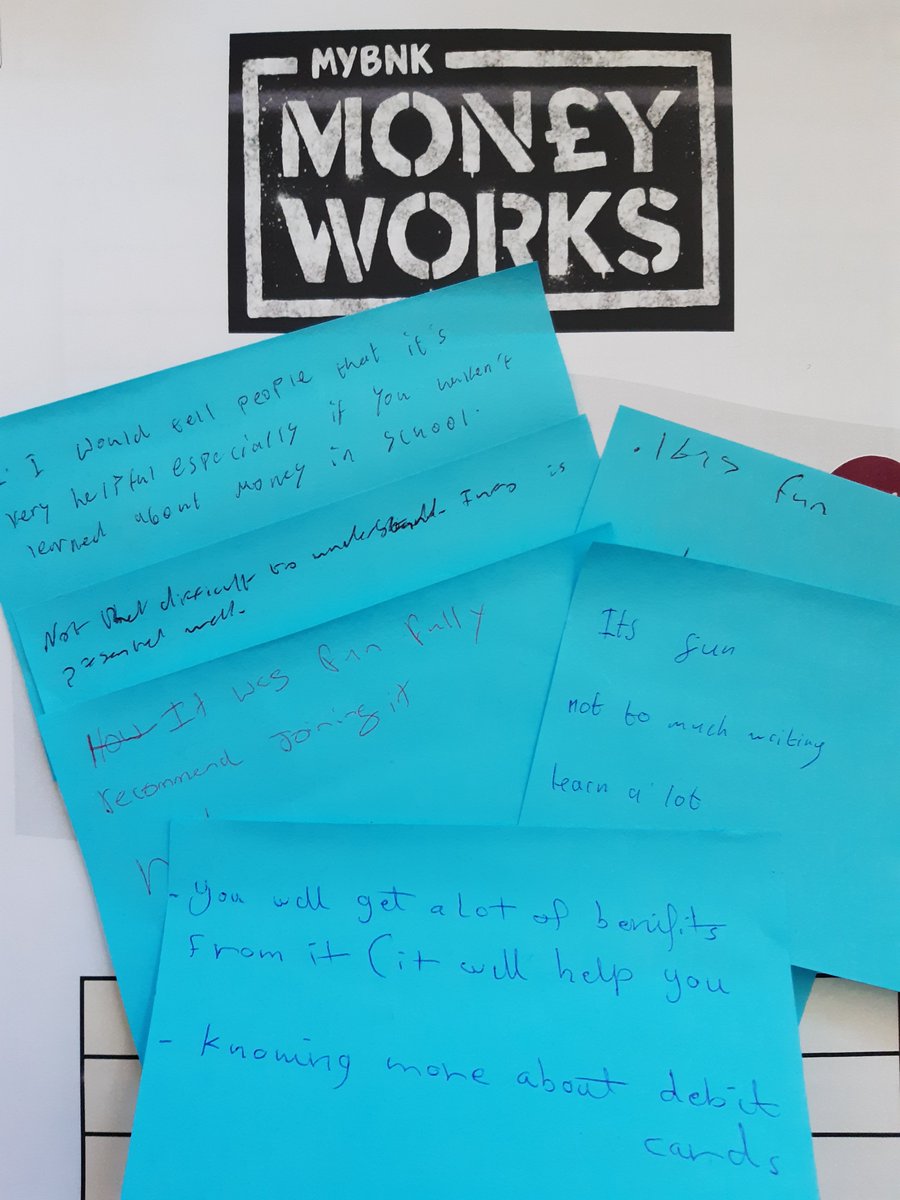 MYBNK
MON£Y
WORKS
: I would tell people that it's
very helpful especially if you haven't
learned about money in school.
Not that difficult to understand. Info is
presented well.
How It was fun fully
recommend joining it
. Its fun
Its fun
not to much writing
learn a lot
- You will get a lot of benifits
from it (it will help you
- Knowing more about debit
cards